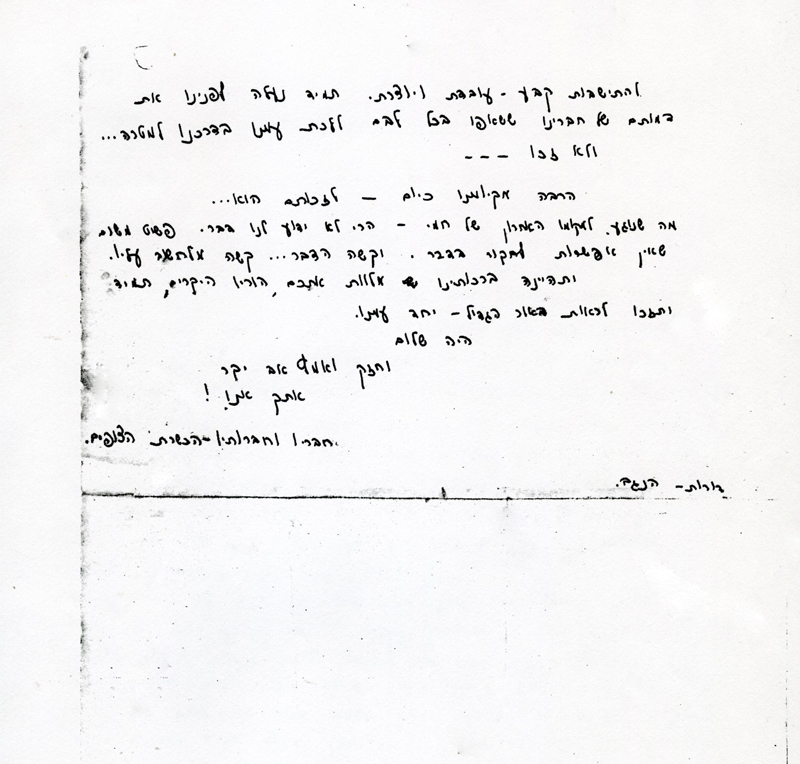 להתישבות קבע - עובדת ויוצרת. תמיד נעלה לפנינו את
דמותם של חברינו ששאפו בכל לבם ללכת עמנו בדרכנו למטרה...
ולא זכו ---
הרבה מקיומנו כיום - לזכותם הוא...
מה שנוגע למקומו האחרון של חמי - הרי לא ידוע לנו דבר. פשוט משום
שאין אפשרות לחקור בדבר. וקשה הדבר... קשה מלחשוב עליו.
ותהיינה ברכותינו מלוות אתכם, הוריו היקרים, תמיד
ותזכו לראות באור הגדול - יחד עמנו.
היה שלום
וחזק ואמץ אב יקר
אתך אנו!
חבריו וחברותיו - הכשרת הצופים.
דורות - הנגב.